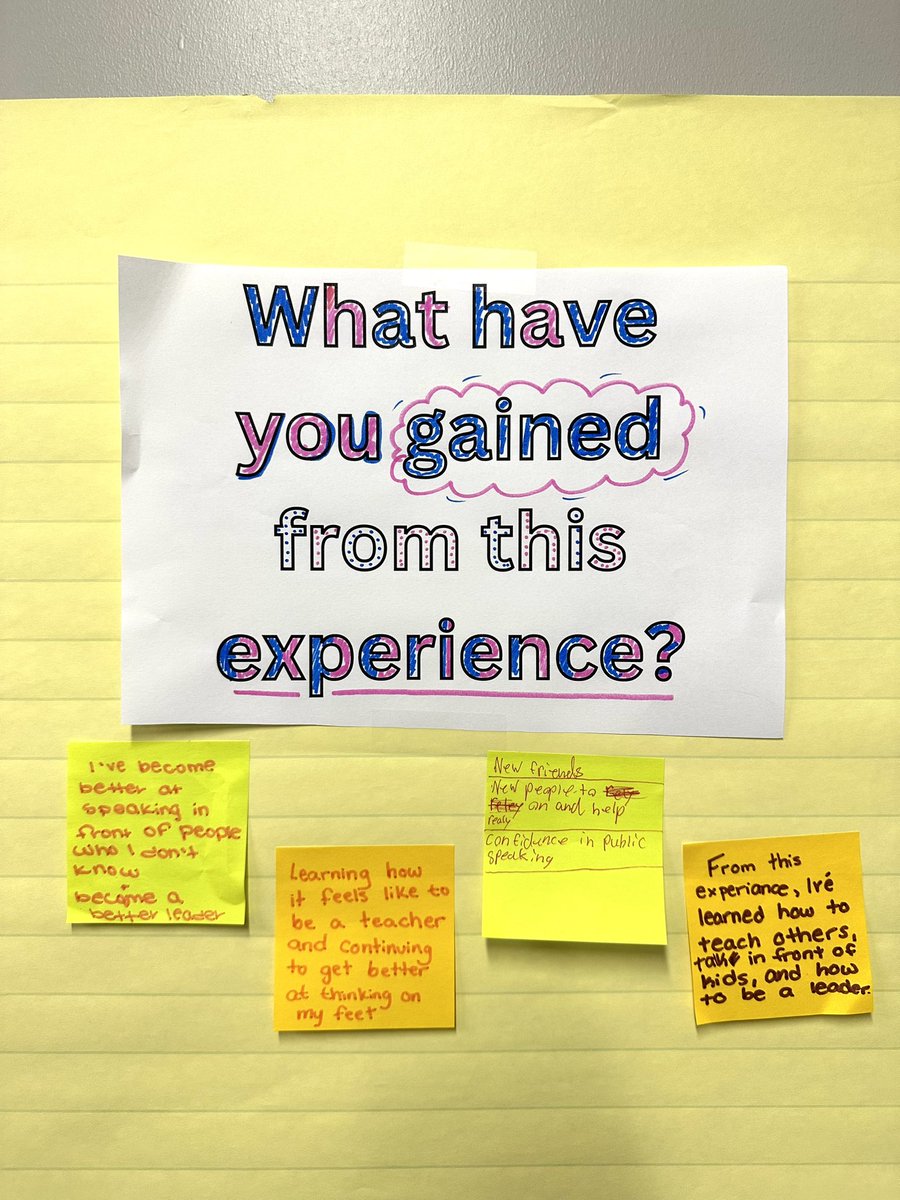 What have
you gained
from this
experience?
I've become
better at
speaking in
front of people
who I don't
know
become a
better leader
Learning how
it feels like to
be a teacher
and continuing
to get better
at thinking on
my feet
New friends
New people to
on and help
realy
confidence in public
speaking
From this
experiance, I've
learned how to
teach others,
talk in front of
kids, and how
to be a leader.